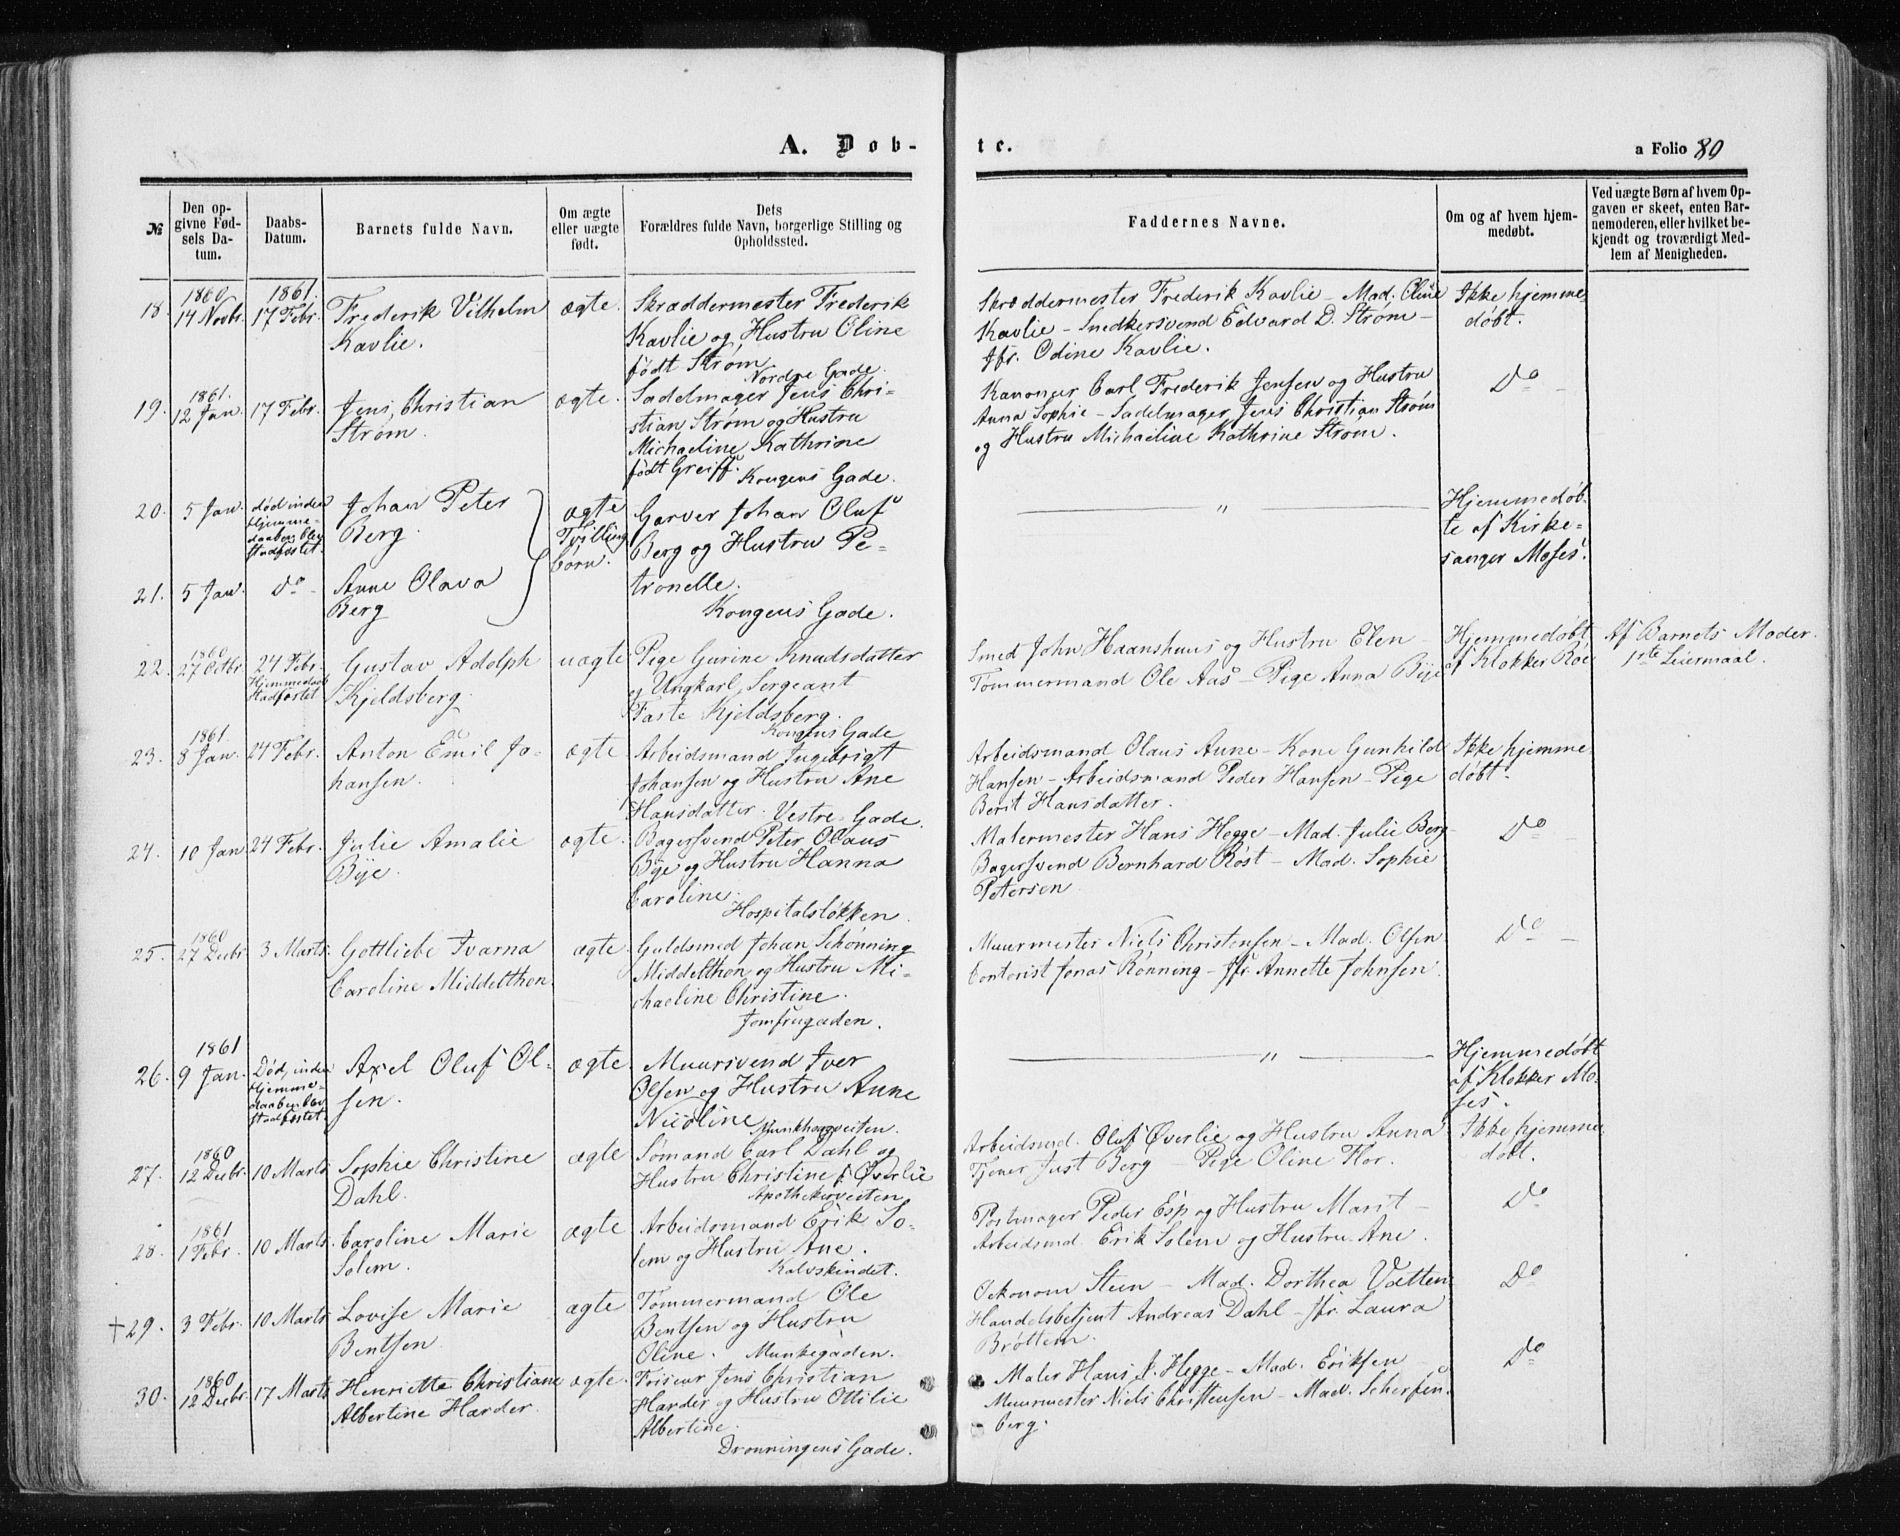 A. Døb-
te.
a Folio 80
№
Den op-
givne Fød-
sels Da-
tum.
Daabs-
Datum.
Barnets fulde Navn.
Om ægte
eller uægte
født.
Dets
Forældres fulde Navn, borgerlige Stilling og
Opholdssted.
Faddernes Navne.
Om og af hvem hjem-
medøbt.
Ved uægte Børn af hvem Op-
gaven er skeet, enten Bar-
nemoderen, eller hvilket be-
kjendt og troværdigt Med-
lem af Menigheden.
18.
1860
14 Novbr.
1861
17 Febr.
Frederik Vilhelm
Kavlie.
ægte.
Skræddermester Frederik
Kavlie og Hustru Oline
født Strøm
Nordre Gade.
Skræddermester Frederik Kavlie – Mad. Oline
Kavlie – Snedkersvend Edvard D. Strøm –
Jfr. Odine Kavlie.
Ikke hjemme
døbt.
19.
1861.
12 Jan.
17 Febr.
Jens Christian
Strøm.
ægte.
Sadelmager Jens Chri-
stian Strøm og Hustru
Michaeline Kathrine
født Greiff.
Kongens Gade.
Kanoneer Carl Frederik Jensen og Hustru
Anna Sophie – Sadelmager Jens Christian Strøm
og Hustru Michaeline Kathrine Strøm.
Do –
20.
5 Jan.
død inden
Hjemme-
daaben blev
stadfæstet.
Johan Peter
Berg.
ægte
Tvilling
børn.
Garver Johan Oluf
Berg og Hustru Pe-
tronelle.
Kongens Gade.
— " —
Hjemmedøb-
te af Kirke-
sanger Moses.
21.
5 Jan.
Do –
Anne Olava
Berg
22.
1860
27 Octbr.
24 Febr.
Hjemmedaab
Stadfæstet
Gustav Adolph
Kjeldsberg.
uægte
Pige Gurine Knudsdatter
og Ungkarl, Sergeant
Taste Kjeldsberg.
Kongens Gade
Smed John Haanshuus og Hustru Elen –
Tømmermand Ole Aas – Pige Anna Bye
Hjemmedøbt
af Klokker Röe
Af Barnets Moder.
1ste Leiermaal.
23.
1861.
8 Jan.
24 Febr.
Anton Emil Jo-
hansen.
ægte
Arbeidsmand Ingebrigt
Johansen og Hustru Ane
Hansdatter. Vestre Gade.
Arbeidsmand Olaus Aune – Kone Gunhild
Hansen – Arbeidsmand Peder Hansen – Pige
Berit Hansdatter.
Ikke hjemme
døbt.
24.
10 Jan
24 Febr.
Julie Amalie
Bye.
ægte.
Bagersvend Peter Olaus
Bye og Hustru Hanna
Caroline.
Hospitalsløkken.
Malermester Hans Hegge – Mad. Julie Berg
Bagersvend Bernhard Röst – Mad. Sophie
Petersen
Do –
25.
1860
27 Decbr.
3 Marts.
Gottliebe Ivarna
Caroline Middelthon.
ægte.
Guldsmed Johan Schønning
Middelthon og Hustru Mi-
chaeline Christine.
Jomfrugaden.
Muurmester Niels Christensen – Mad. Olsen
Contorist Jonas Rønning – Jfr. Annette Johnsen.
Do –
26.
1861
9 Jan.
Død, inden
Hjemme-
daaben blev
stadfæstet.
Axel Oluf Ol-
sen.
ægte.
Muursvend Iver
Olsen og Hustru Anne
Nicoline
Munkhaugveiten.
— " —
Hjemmedøbt
af Klokker Mo-
ses.
27.
1860
12 Decbr.
10 Marts
Sophie Christine
Dahl.
ægte
Sømand Carl Dahl og
Hustru Christine f. Øverlie
Apothekerveiten
Arbeidsmd. Oluf Øverlie og Hustru Anna
Tjener Just Berg – Pige Oline Flor.
Ikke hjemme
døbt.
28.
1861
1 Febr.
10 Marts.
Caroline Marie
Solem.
ægte
Arbeidsmand Erik So-
lem og Hustru Ane.
Kalvskindet.
Postmager Peder Esp og Hustru Marit –
Arbeidsmd. Erik Solem og Hustru Ane.
Do
†29.
3 Febr.
10 Marts
Lovise Marie
Bentsen
ægte
Tømmermand Ole
Bentsen og Hustru
Oline. Munkegaden.
Oekonom Steen – Mad. Dorthea Vætten
Handelsbetjent Andreas Dahl – Jfr. Laura
Brøttem.
Do
30.
1860
12 Decbr.
17 Marts
Henriette Christiane
Albertine Harder.
ægte.
Friseur Jens Christian
Harder og Hustru Ottilie
Albertine.
Dronningens Gade.
Maler Hans J. Hegge – Mad. Eriksen –
Muurmester Niels Christensen – Mad. Scherfen-
berg.
Do